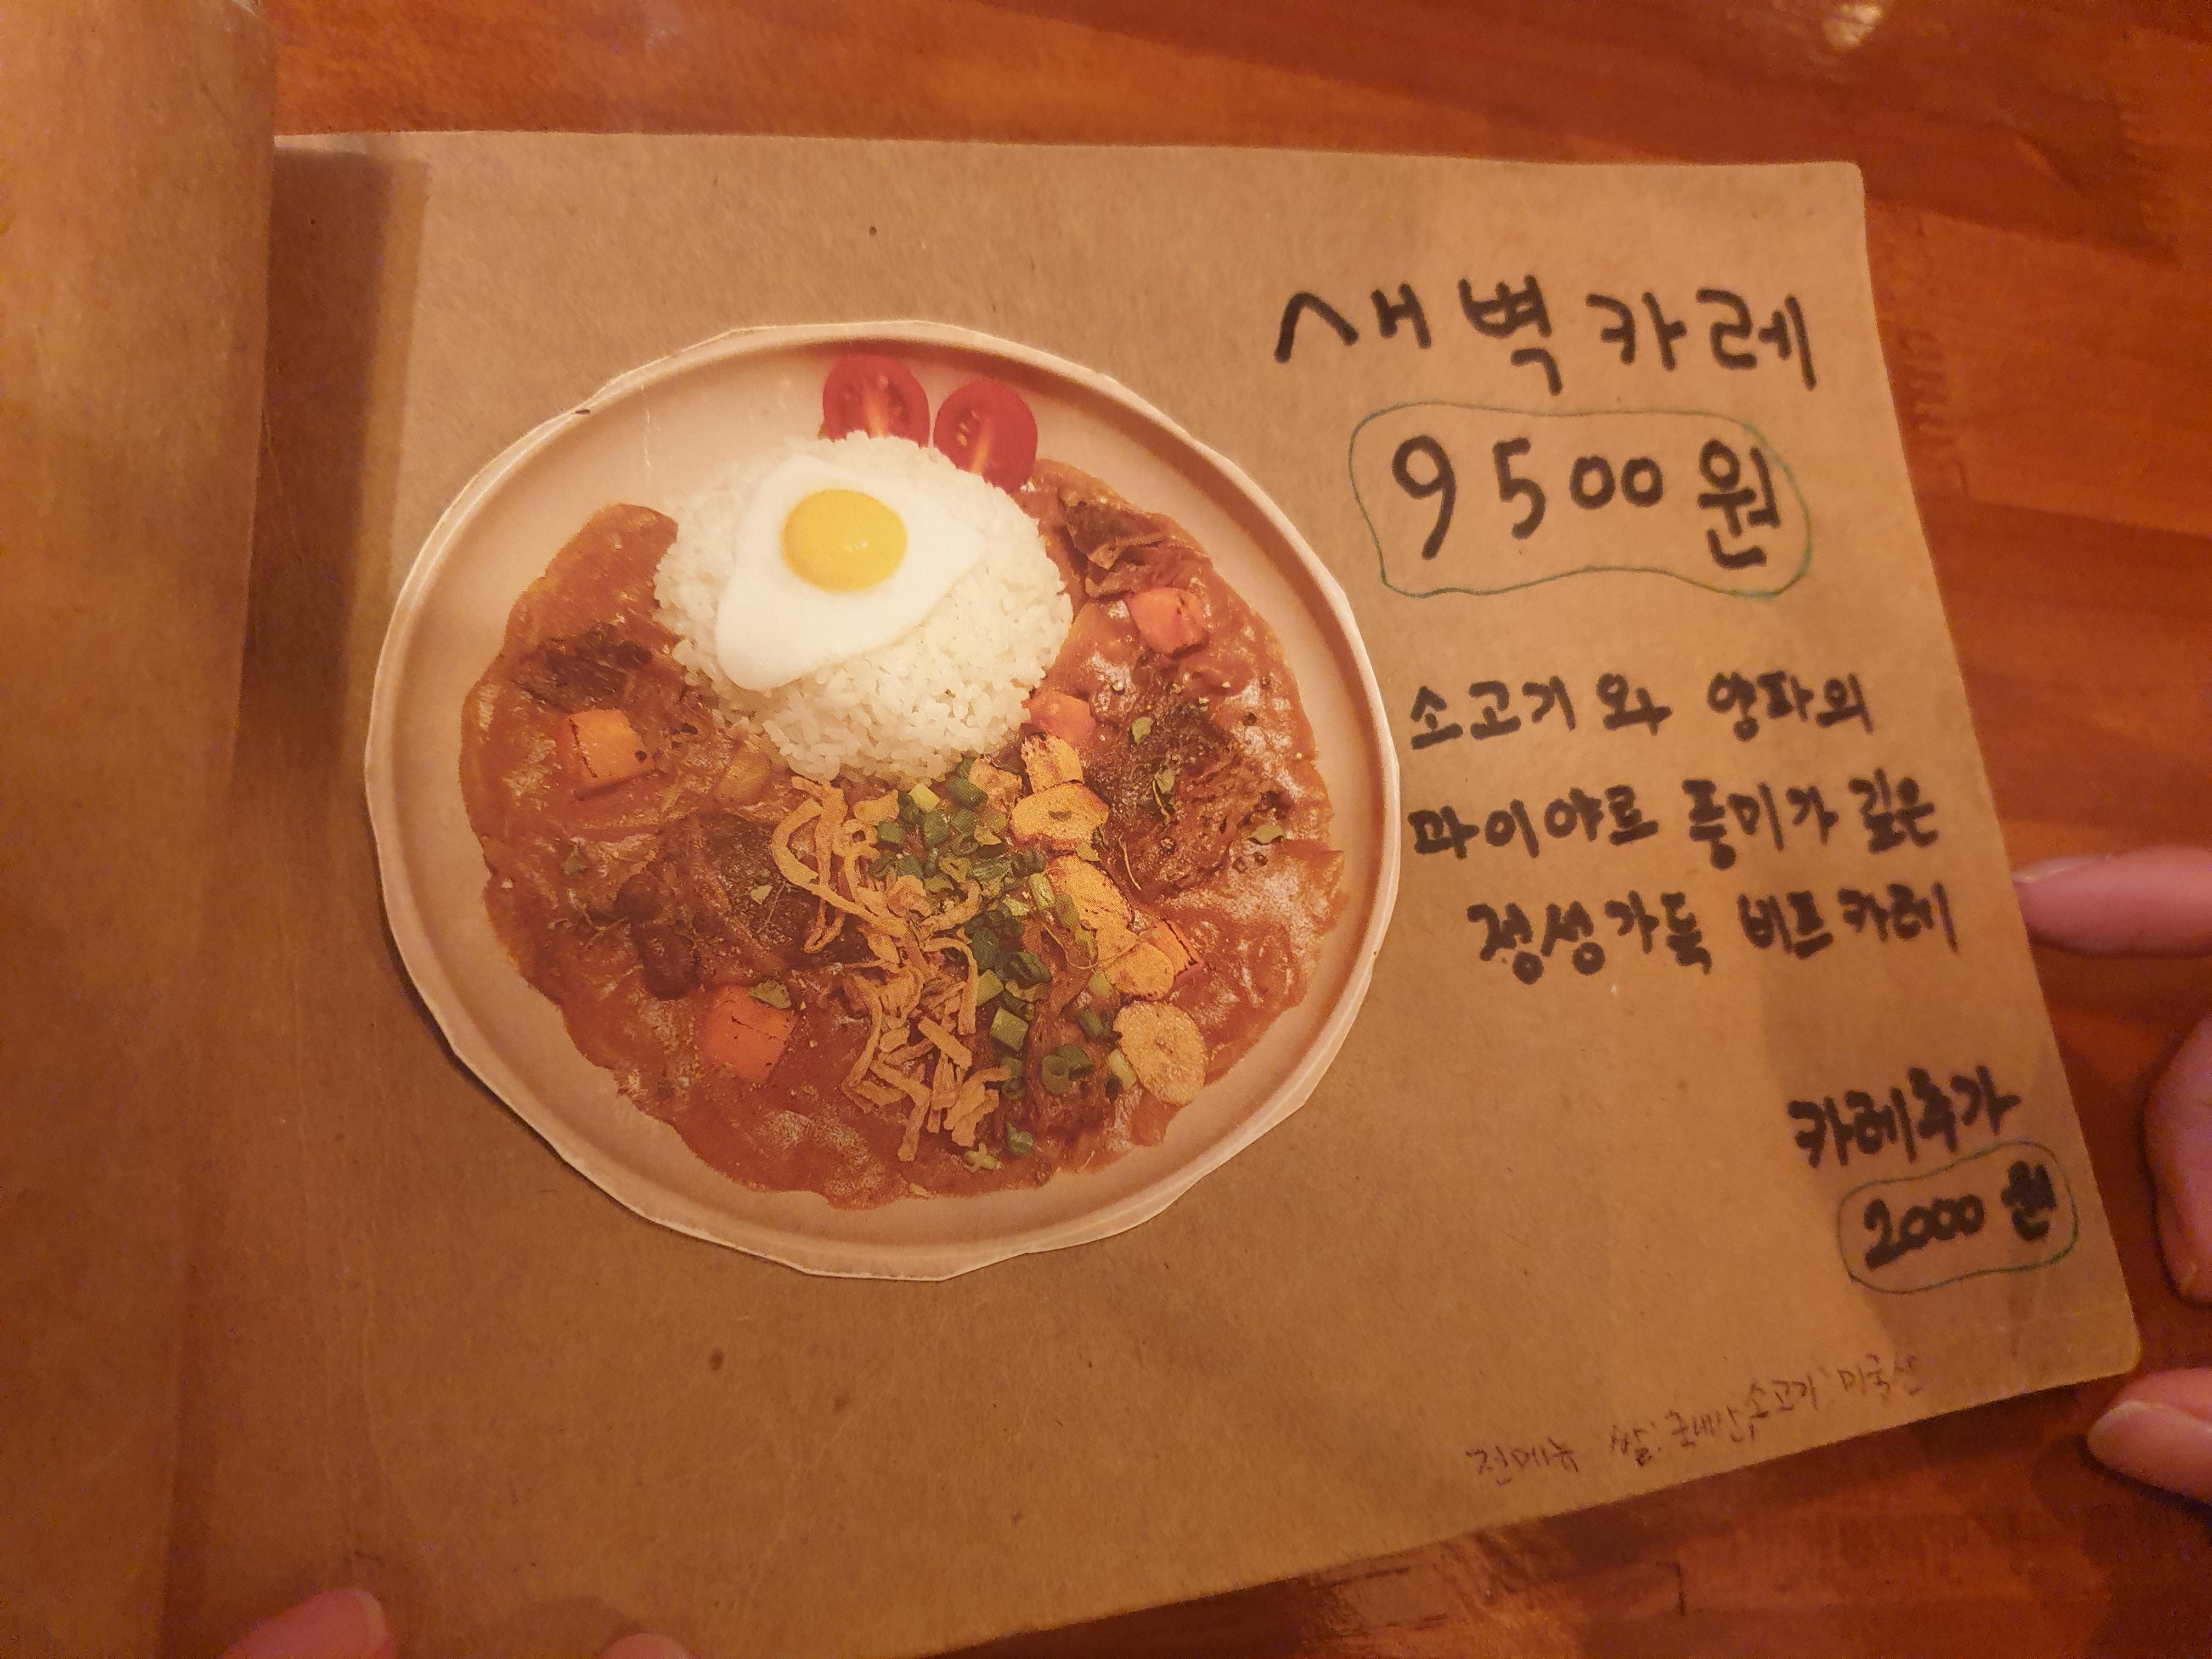 새벽카레
9500원
소고기와 양파의
마이야르 풍미가 깊은
정성가득 비프카레
카레추가
2000원
전메뉴 쌀:국내산, 소고기 미국산